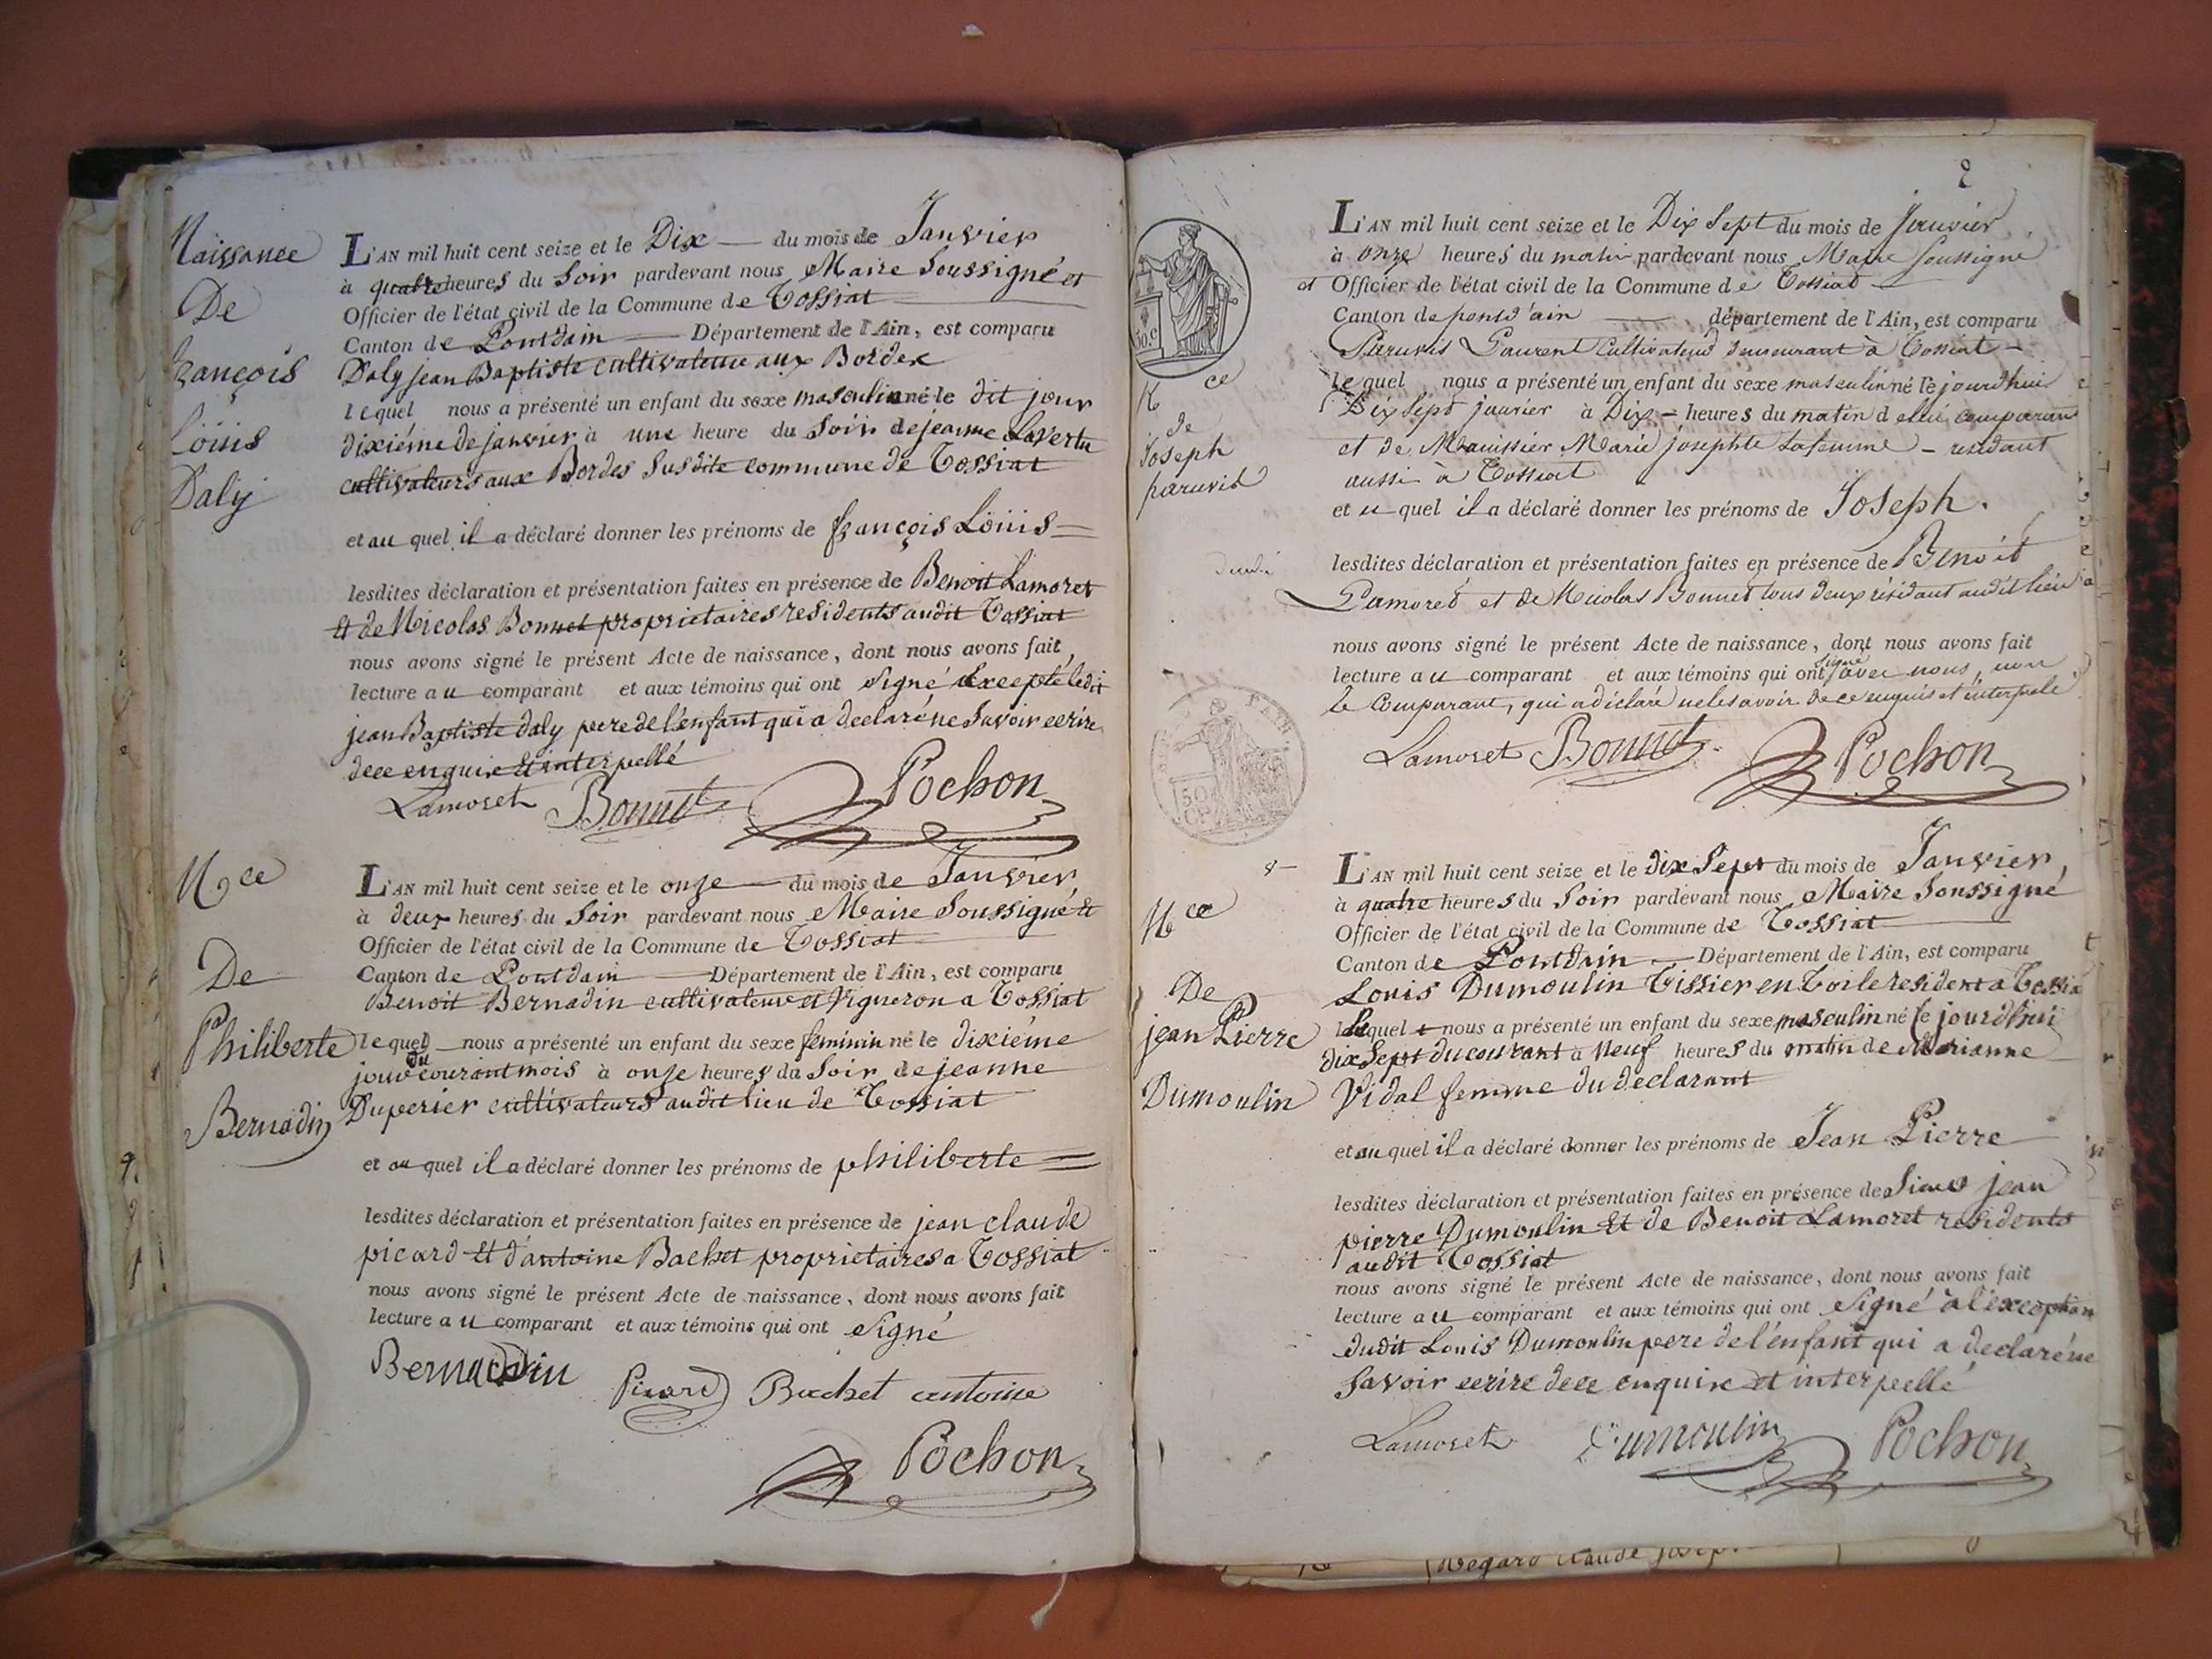 Naissance
De
françois
Löüis
Daly
L'AN mil huit cent seize et le Dix du mois de Janvier
à quatre heures du Soir pardevant nous Maire Soussigné et
Officier de l'état civil de la Commune de Tossiat
Canton de Pontdain Département de l'Ain, est comparu
Daly jean Baptiste cultivateur aux Bordes
lequel nous a présenté un enfant du sexe masculin né le dit jour
dixiéme de janvier à une heure du Soir de jeanne Lavertu
cultivateurs aux Bordes Susdite commune de Tossiat
et au quel il a déclaré donner les prénoms de françois Löüis
lesdites déclaration et présentation faites en présence de Benoit Lamoret
Et de Nicolas Bonnet proprietaires residents audit Tossiat
nous avons signé le présent Acte de naissance, dont nous avons fait
lecture au comparant et aux témoins qui ont Signé Excepté ledit
jean Baptiste daly pere de l'enfant qui a declaré ne Savoir ecrire
de ce enquire Et interpellé
Lamoret Bonnet Pochon
Nce
De
Philiberte
Bernadin
L'AN mil huit cent seize et le onze du mois de Janvier
à deux heures du Soir pardevant nous Maire Soussigné et
Officier de l'état civil de la Commune de Tossiat
Canton de Pontdain Département de l'Ain, est comparu
Benoit Bernadin cultivateur et Vigneron a Tossiat
lequel nous a présenté un enfant du sexe feminin né le dixiéme
jour du courant mois à onze heures du Soir de jeanne
Duperier cultivateurs audit lieu de Tossiat
et au quel il a déclaré donner les prénoms de philiberte
lesdites déclaration et présentation faites en présence de jean claude
picard Et d'antoine Bachet proprietaires a Tossiat
nous avons signé le présent Acte de naissance, dont nous avons fait
lecture au comparant et aux témoins qui ont Signé
Bernardin Picard Bachet antoine
Pochon
2
50.C
Nce
de
Joseph
paruvid
L'AN mil huit cent seize et le Dix Sept du mois de Janvier
à onze heures du matin pardevant nous Maire Soussigné
et Officier de l'état civil de la Commune de Tossiat
Canton de pont d'ain département de l'Ain, est comparu
Laurent Cultivateur demeurant à Tossiat
lequel nous a présenté un enfant du sexe masculin né le jourdhui
Dix Sept janvier à Dix heures du matin de lui comparant
et de Maussier Marie josephte Safemme résidant
aussi à Tossiat
et u quel il a déclaré donner les prénoms de Joseph.
lesdites déclaration et présentation faites en présence de Benoit
Lamoret et de Nicolas Bonnet tous deux résidant audit lieu
nous avons signé le présent Acte de naissance, dont nous avons fait
lecture au comparant et aux témoins qui ont signé avec nous, non
le Comparant, qui a déclaré ne le savoir de ce enquis et interpelé
Lamoret Bonnet Pochon
Nce
De
jean Pierre
Dumoulin
L'AN mil huit cent seize et le dix Sept du mois de Janvier
à quatre heures du Soir pardevant nous Maire Soussigné
Officier de l'état civil de la Commune de Tossiat
Canton de Pontdain Département de l'Ain, est comparu
Louis Dumoulin Tissier en Toile resident a Tossia
Lequel nous a présenté un enfant du sexe masculin né le jourdhui
dix Sept du courant à Neuf heures du matin de Marianne
Vidal femme du declarant
et au quel il a déclaré donner les prénoms de Jean Pierre
lesdites déclaration et présentation faites en présence de Sieur jean
pierre Dumoulin Et de Benoit Lamoret residents
audit Tossiat
nous avons signé le présent Acte de naissance, dont nous avons fait
lecture au comparant et aux témoins qui ont Signé à l'exception
dudit Louis Dumoulin pere de l'enfant qui a declaré ne
Savoir ecrire de ce enquire et interpellé
Lamoret Dumoulin Pochon